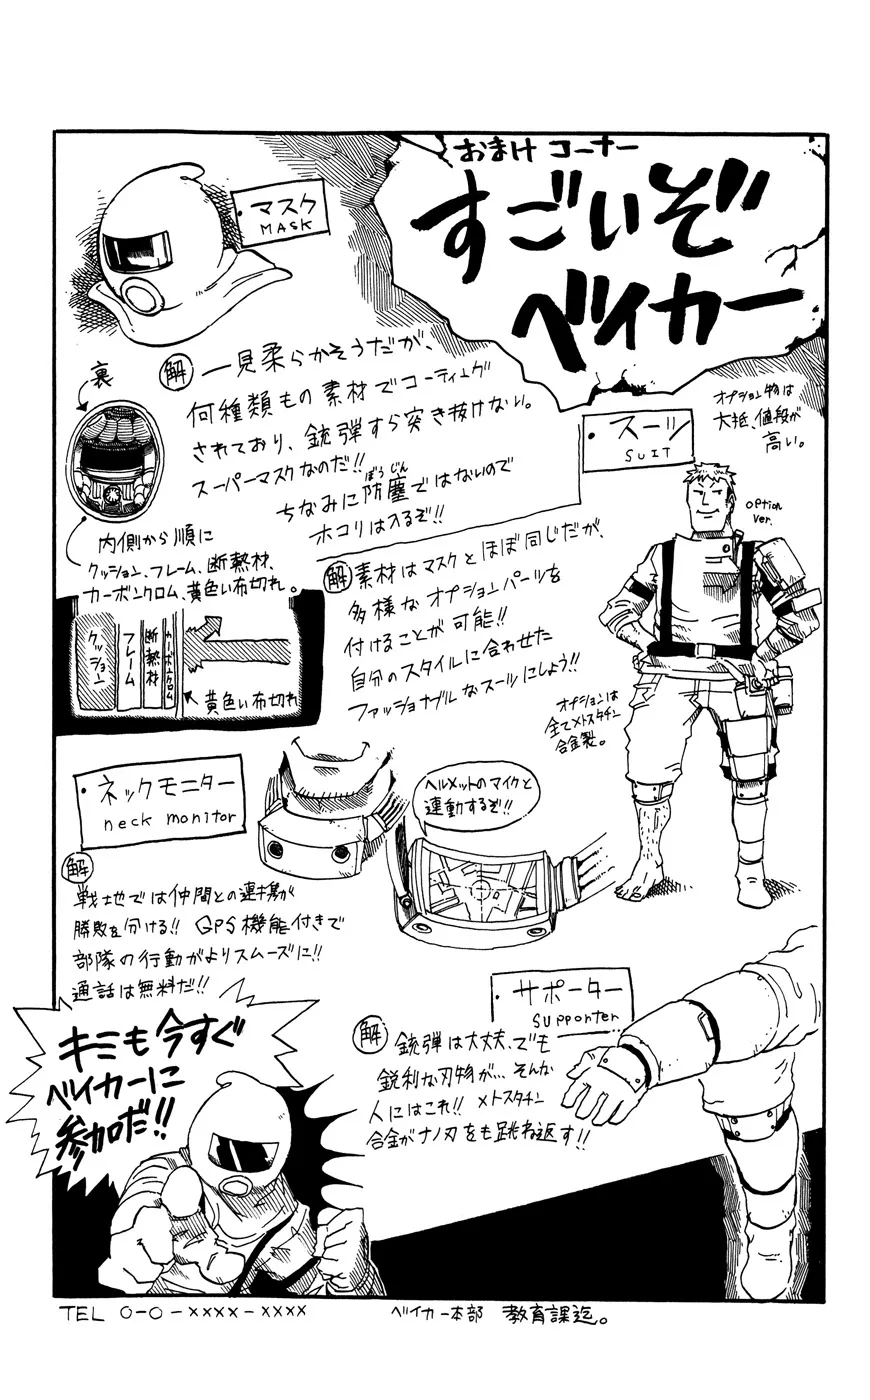 おまけ コーナー
すごいぞ
ベイカー
・マスク
MASK
解
一見柔らかそうだが、
何種類もの素材でコーティング
されており、銃弾すら突き抜けない。
スーパーマスクなのだ!!
ちなみに防塵ではないので
ぼうじん
ホコリは入るぞ!!
裏
内側から順に
クッション、フレーム、断熱材、
カーボンクロム、黄色い布切れ。
クッション
フレーム
断熱材
カーボンクロム
黄色い布切れ
・スーツ
SUIT
オプション物は
大抵、値段が
高い。
option
ver.
解
素材はマスクとほぼ同じだが、
多様なオプションパーツを
付けることが可能!!
自分のスタイルに合わせた
ファッショナブルなスーツにしよう!!
オプションは
全てメトスタチン
合金製。
・ネックモニター
neck monitor
ヘルメットのマイクと
連動するぞ!!
解
戦地では仲間との連携が
勝敗を分ける!! GPS機能付きで
部隊の行動がよりスムーズに!!
通話は無料だ!!
・サポーター
supporter
解
銃弾は大丈夫、でも
鋭利な刃物が…そんな
人にはこれ!! メトスタチン
合金がナノ刃をも跳ね返す!!
キミも今すぐ
ベイカーに
参加だ!!
TEL 0-0-xxxx-xxxx
ベイカー本部 教育課迄。